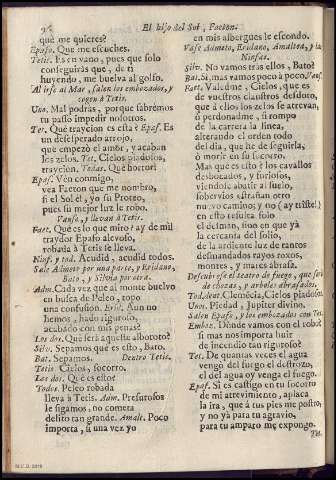 96
El hijo del Sol, Faeton.
què me quieres?
Epafo. Que me escuches.
Tetis. Es en vano, pues que solo
conseguiràs que, de ti
huyendo, me buelva al golfo.
Al irse al Mar, salen los embozados, y
cogen à Tetis.
Uno. Mal podràs, porque sabrèmos
tu passo impedir nosotros.
Tet. Què traycion es esta? Epaf. Es
un desesperado arrojo,
que empezò el amor, y acaban
los zelos. Tet. Cielos piadosos,
traycion. Todas. Què horror!
Epaf. Vèn conmigo,
vea Faeton que me nombro,
si èl Sol èl, yo su Proteo,
pues su mejor luz le robo.
Vanse, y llevan à Tetis.
Faet. Què es lo que miro! ay de mi!
traydor Epafo alevoso,
robada à Tetis se lleva.
Ninf. y tod. Acudid, acudid todos.
Sale Admeto por una parte, y Eridano,
Bato, y Silvia por otra.
Adm. Cada vez que al monte buelvo
en busca de Peleo, topo
una confusion. Erid. Aun no
hemos, hado riguroso,
acabado con mis penas?
Los dos. Què serà aqueste alboroto?
Silv. Sepamos què es esto, Bato.
Bat. Sepamos. Dentro Tetis.
Tetis. Cielos, socorro.
Los dos. Què es esto?
Todos. Peleo robada
lleva à Tetis. Adm. Presurosos
le sigamos, no cometa
delito tan grande. Amalt. Poco
importa, si una vez yo
en mis albergues le escondo.
Vase Admeto, Eridano, Amaltea, y las
Ninfas.
Silv. No vamos tras ellos, Bato?
Bat. Si, mas vamos poco à poco. Vanse.
Faet. Valedme, Cielos, que es
de vuestros claustros desdoro,
que à ellos los zelos se atrevan,
ò perdonadme, si rompo
de la carrera la linea,
alterando el orden todo
del dia, que he de seguirla,
ò morir en su socorro.
Mas què es esto? los cavallos
desbocados, y furiosos,
viendose abatir al suelo,
sobervios estrañan otro
nuevo camino; y no (ay triste!)
en esto resulta solo
el desmàn, sino en que yà
la cercania del solio,
de la ardiente luz de tantos
desmandados rayos roxos,
montes, y mares abrasa.
Descubrese el teatro de fuego, que será
de chozas, y arboles abrasados.
Tod. dent. Clemencia, Cielos piadosos.
Unos. Piedad, Jupiter divino!
Salen Epafo, y los embozados con Tetis.
Emboz. Dònde vamos con el robo,
si mas nos importa huir
de incendio tan riguroso?
Tet. De quantas veces el agua
vengò del fuego el destrozo,
el del agua oy venga el fuego.
Epaf. Si es castigo en tu socorro
de mi atrevimiento, aplaca
la ira, que à tus pies me postro,
y no yà para tu agravio,
para tu amparo me expongo.